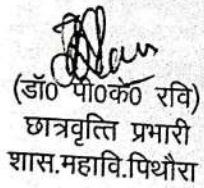 (डॉ0 पी0के0 रवि)
छात्रवृत्ति प्रभारी
शास.महावि.पिथौरा